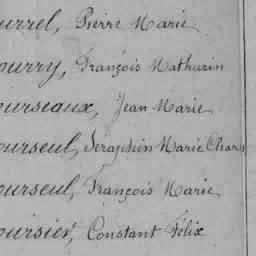 urrel, Pierre Marie
ourry, François Mathurin
ourseaux, Jean Marie
ourseul, Séraphin Marie Charl
ourseul, François Marie
oursier, Constant Félix